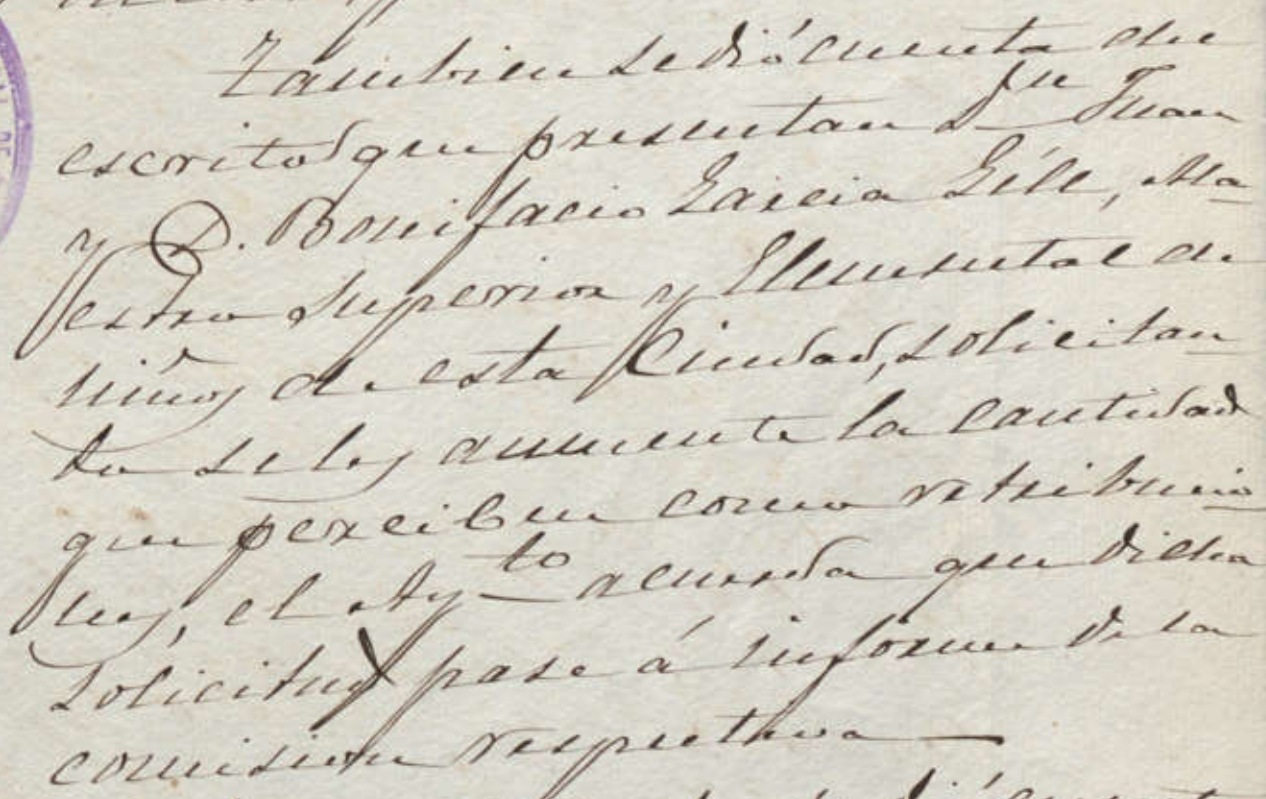 Tambien se dió cuenta de
escrito que presentan Dn Juan
y D. Bonifacio Garcia Gill, Ma
estro Superior y Elemental de
niños de esta Ciudad, solicitan
do se les aumente la cantidad
que perciben como retribucio
nes, el Ayto acuerda que dicha
solicitud pase á informe de la
comision respectiva
dió cuenta